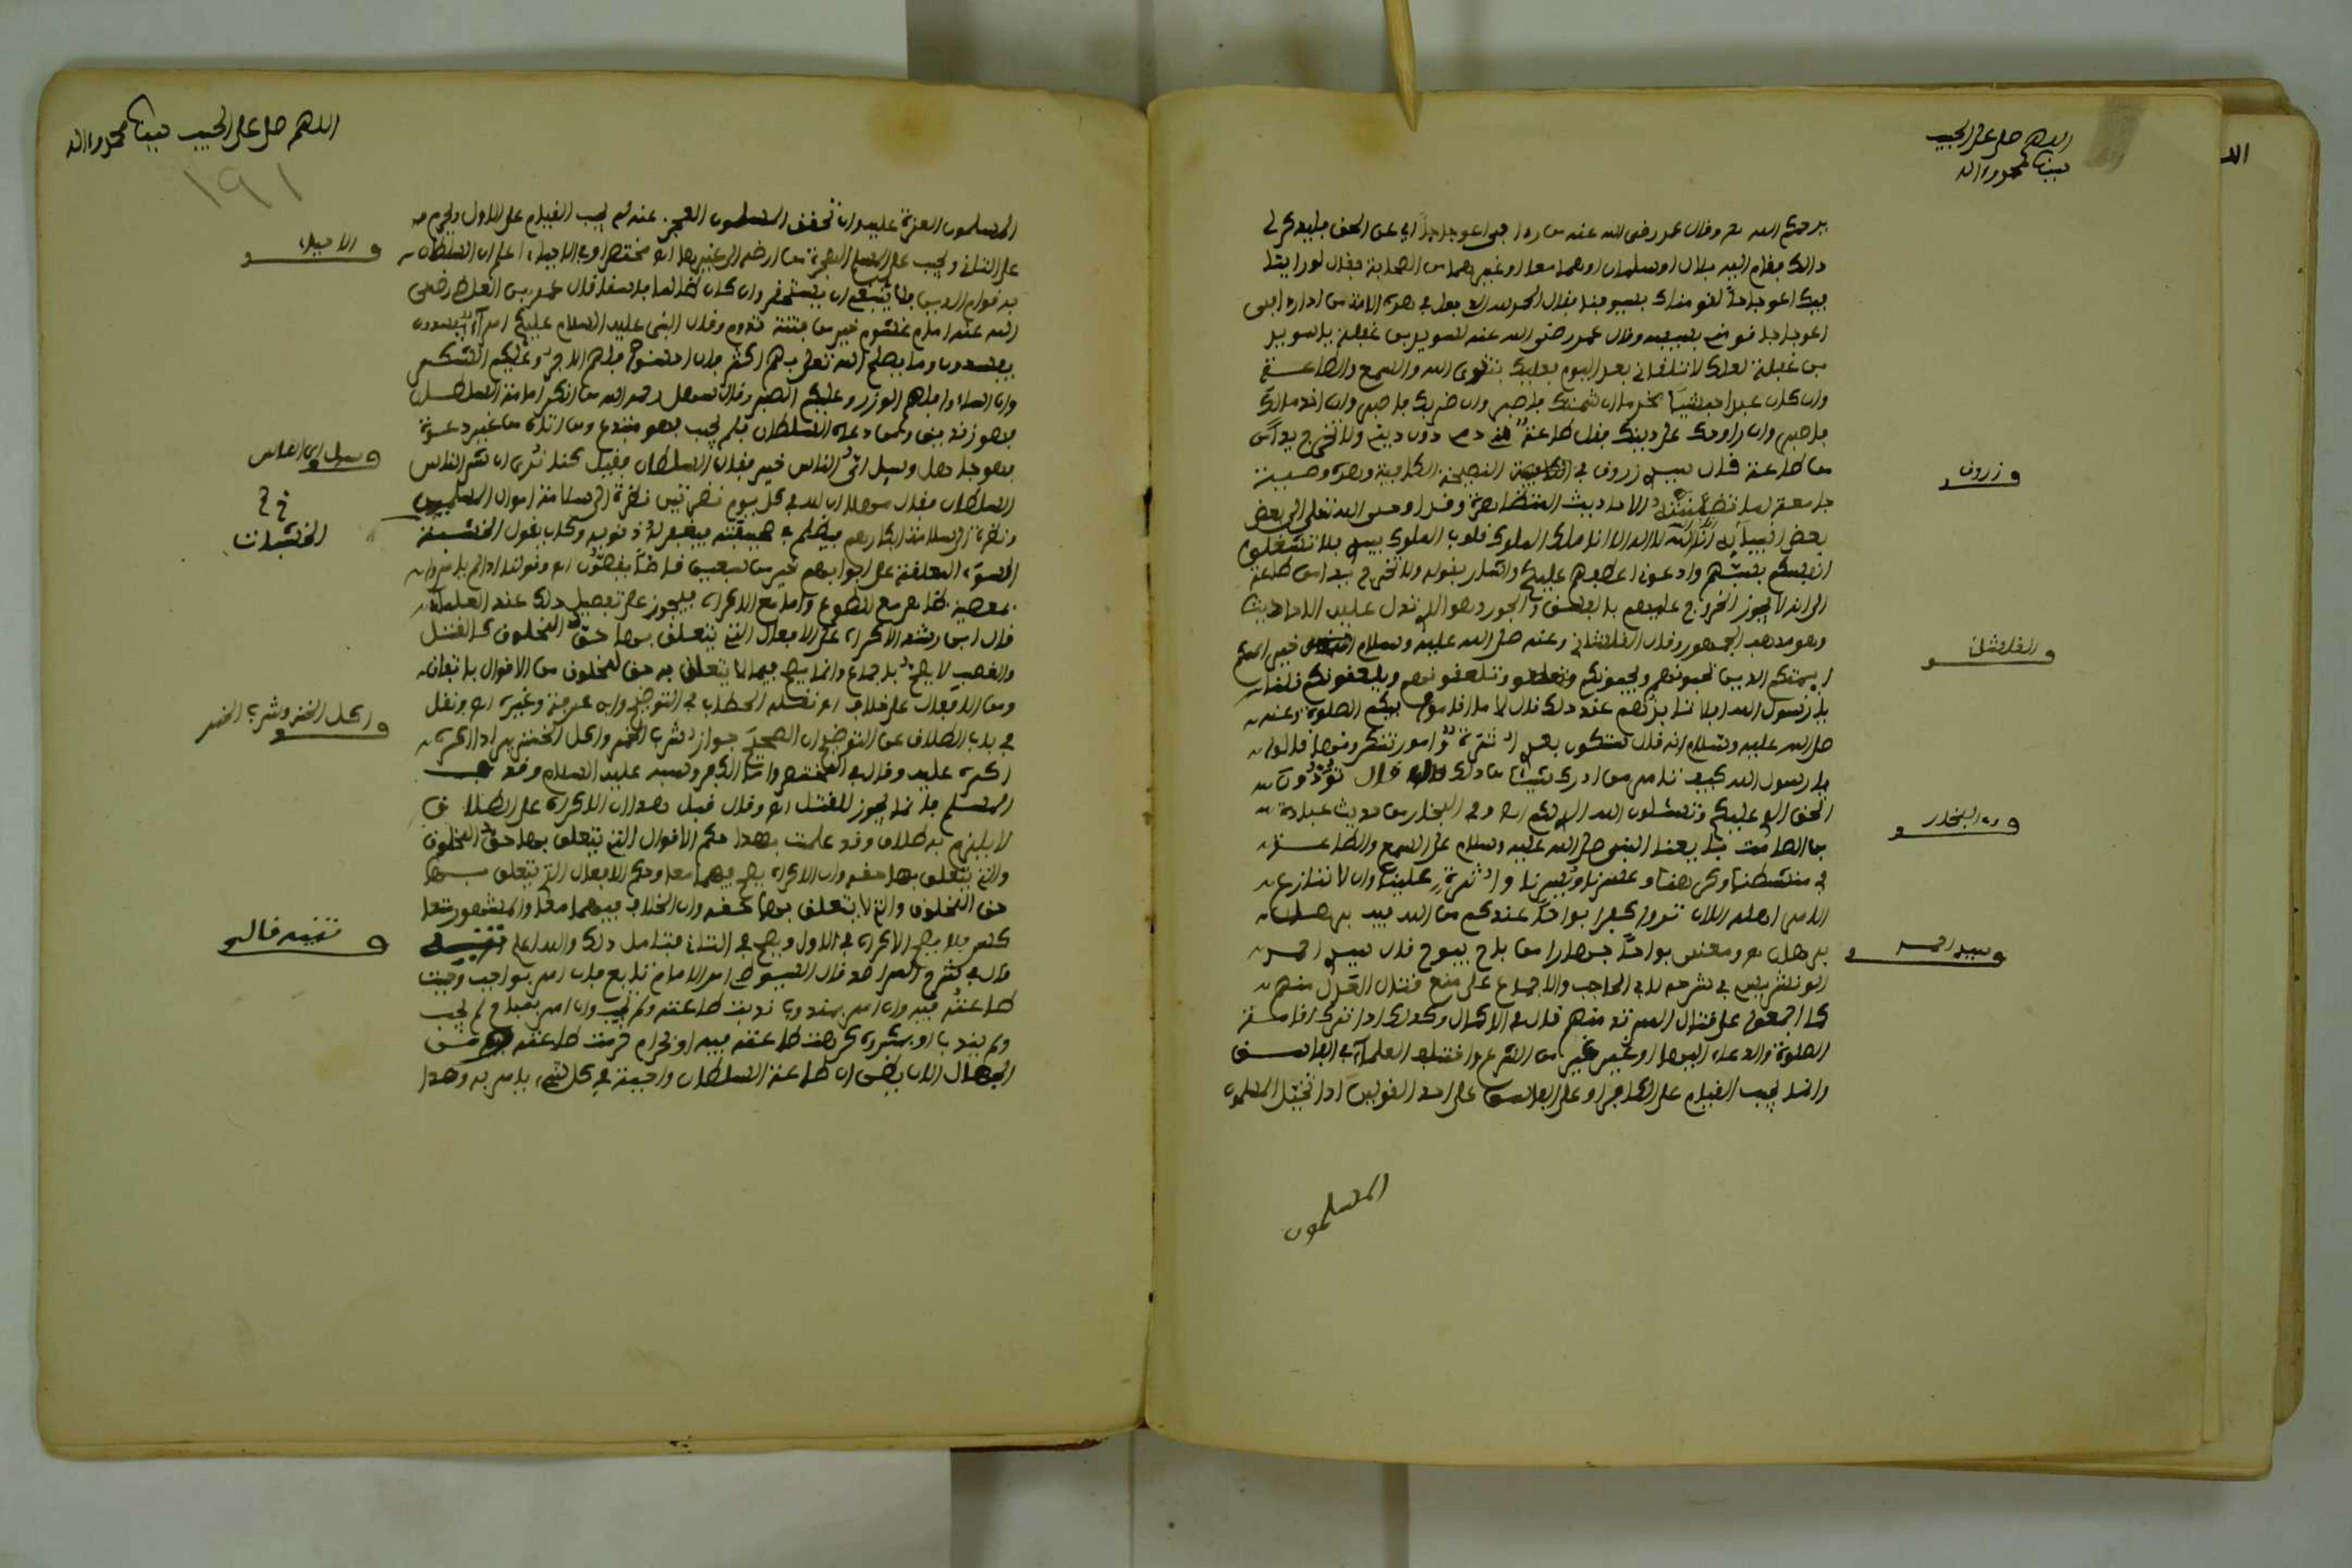 اللهم صل على الحبيب
نبينا محمد وآله
يرحمكم الله وقال عمر رضي الله عنه من رءا في اعوجاجا اي عن الحق فليذكر لي
ذالك فقام اليه بلال او سلمان او هما معا او غيرهما من الصحابة فقال لو راينا
فيك اعوجاجا لقومناك بسيوفنا فقال الحمد لله الذي جعل في هذه الامة من اذا رءا في
اعوجاجا قومني بسيفه وقال عمر رضي الله عنه لسويد بن غفلة يا سويد
بن غفلة لعلك لا تلقاني بعد اليوم فعليك بتقوى الله والسمع والطاعة
وان كان عبدا حبشيا ان شتمك فاصبر وان ضربك فاصبر وان اخذ مالك
فاصبر وان راودك على دينك فقل طاعة دمي دون ديني ولا تخرج يدا
من طاعة قال سيدي زروق في النصيحة الكافية وهذه وصية
جامعة لما تضمنته الاحاديث المتظاهرة وقد اوحى الله تعالى الى بعض
بعض انبيائه انا الله لا اله الا انا ملك الملوك قلوب الملوك بيدي فلا تشغلوا
انفسكم بسبهم وادعوني اعطفهم عليكم واشار بقوله ولا تخرج يدا من طاعة
الى انه لا يجوز الخروج عليهم بالفسق والجور وهو الذي تدل عليه الاحاديث
وهو مذهب الجمهور وقال القلشاني وعنه صلى الله عليه وسلم خير
ايمتكم الذين تحبونهم ويحبونكم وتلعنونهم ويلعنونكم قلنا
يا رسول الله افلا ننابذهم عند ذلك قال لا ما اقاموا فيكم الصلوة وعنه
صلى الله عليه وسلم انه قال ستكون بعدي اثرة وامور تنكرونها قالوا
يا رسول الله كيف تامر من ادرك شيئا من ذلك قال تؤدون
الحق الذي عليكم وتسئلون الله الذي لكم اه وفي البخاري من حديث عبادة
بن الصامت بايعنا النبي صلى الله عليه وسلم على السمع والطاعة
في منشطنا ومكرهنا وعسرنا ويسرنا واثرة علينا وان لا ننازع
الامر اهله الا ان تروا كفرا بواحا عندكم من الله فيه برهان
برهان اه ومعنى بواحا جهارا من باح يبوح قال سيدي احمد
الونشريسي في شرحه لابن الحاجب والاجماع على منع قتال العدل منهم
كما اجمعوا على قتال المرتد منهم قال في الاكمال وكذلك اذا ترك اقامة
الصلوة والدعاء اليها او غير شيئا من الشرع واختلف العلماء في الفاسق
وانما يجب القيام على الكافر او على الفاسق على احد القولين اذا تخيل المسلمون
المسلمون
و زروق
و القلشاني
و البخاري
و سيد احمد
اللهم صل على الحبيب نبينا محمد وآله
١٩١
المسلمون القدرة عليه وان تحقق المسلمون العجز عنه لم يجب القيام على الاول ويحرم
على الثاني ويجب على المسلم الهجرة من ارضه الى غيرها اه مختصرا وفي الاحياء اعلم ان السلطان
به قوام الدين فلا ينبغي ان يستحقر وان كان ظالما فاسقا قال عمر بن العاص رضي
الله عنه امام غشوم خير من فتنة تدوم وقال النبي عليه السلام عليكم امراء يفسدون
يفسدون وما يصلح الله تعالى بهم اكثر فان احسنوا فلهم الاجر وعليكم الشكر
وان اساءوا فعليهم الوزر وعليكم الصبر وقال سهل رحمه الله من انكر امامة السلطان
فهو زنديق ومن دعاه السلطان فلم يجب فهو مبتدع ومن اتاه من غير دعوة
فهو جاهل وسيل اي الناس خير فقال السلطان فقيل كنا نرى ان شر الناس
السلطان فقال مهلا ان لله في كل يوم نظرتين نظرة الى سلامة اموال المسلمين
ونظرة الى سلامة ابكارهم فيطلع في صحيفته فيغفر له ذنوبه وكان يقول الخشبات
السود المعلقة على ابوابهم خير من سبعين قاضا يقضون اه وقولنا اذا لم يامروا
بمعصية ظاهره مع الطوع واما مع الاكراه فيجوز على تفصيل ذلك عند العلماء
قال ابن رشد الاكراه على الافعال التي يتعلق بها حق المخلوق كالقتل
والغصب لا يصح باجماع وانما يصح فيما لا يتعلق به حق لمخلوق من الاقوال باتفاق
ومن الافعال على خلاف اه نقله الحطاب في التوضيح وابن عرفة وغيره اه ونقل
في باب الطلاق عن التوضيح ان الصحيح جواز شرب الخمر واكل الخنزير اذا اكره
اكره عليه وقال في المختصر واما الكفر وسبه عليه السلام وقذف
المسلم فانما يجوز للقتل اه وقال قبل هذا ان الاكراه على الطلاق
لا يلزم به طلاق وقد علمت بهذا حكم الاقوال التي يتعلق بها حق المخلوق
والتي يتعلق بها حقه وان الاكراه يصح فيهما معا وحكم الافعال التي يتعلق بها
حق المخلوق والتي لا يتعلق بها حقه وان الخلاف فيهما معا والمشهور منعا
فلا يصح الاكراه في الاول ويصح في الثاني فتامل ذلك والله اعلم تنبيه
قال في شرح المراصد قال السيوطي امر الامام تابع فان امر بواجب وجبت
طاعته فيه وان امر بمندوب ندبت طاعته ولم تجب وان امر بمباح لم يجب
ولم يندب او بمكروه كرهت طاعته فيه او بحرام حرمت طاعته
الجهال الان يظن ان طاعة السلطان واجبة في كل شيء يامر به وهذا
و الاحياء
و سيل اي الناس
الخشبات
و اكل الخنزير وشرب الخمر
و تنبيه قال في